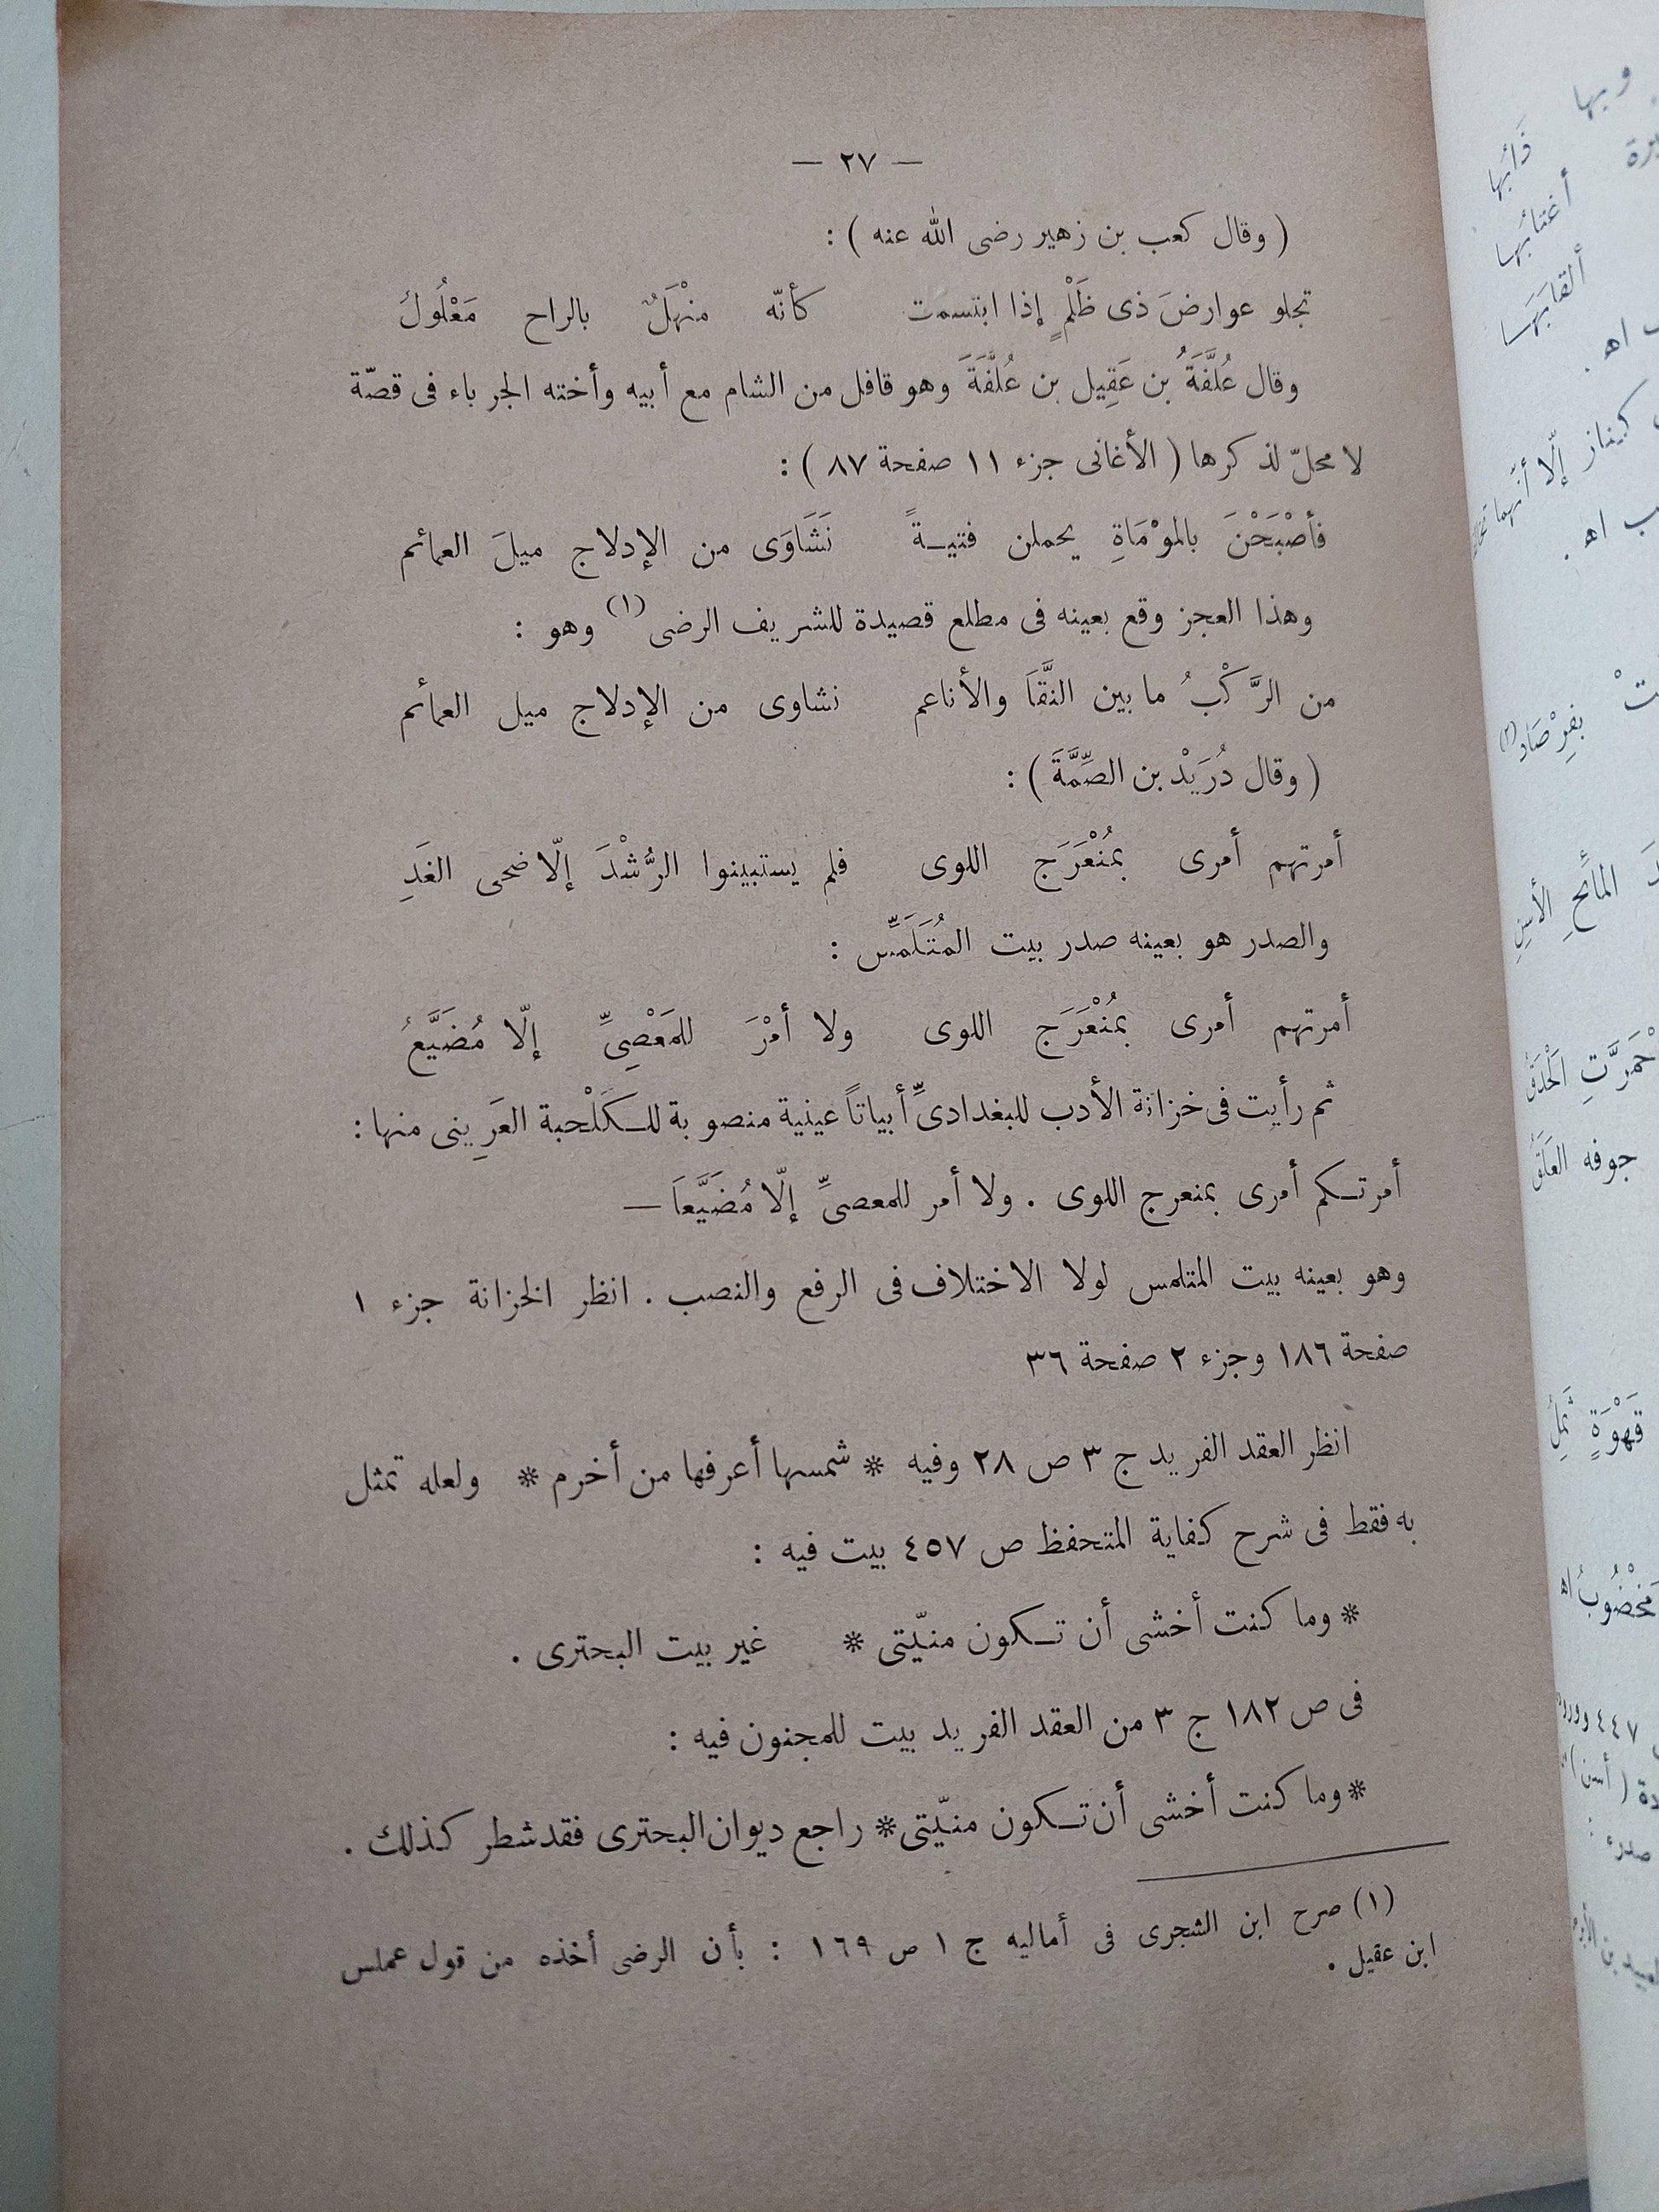 — ٢٧ —
( وقال كعب بن زهير رضى الله عنه ) :
تجلو عوارضَ ذى ظَلْمٍ إذا ابتسمت كأنّه منْهَلٌ بالراح مَعْلُولُ
وقال عُلَّفَةُ بن عَقِيل بن عُلَّفَةَ وهو قافل من الشام مع أبيه وأخته الجرباء فى قصّة
لا محلّ لذكرها ( الأغانى جزء ١١ صفحة ٨٧ ) :
فأصْبَحْنَ بالموْمَاةِ يحملن فتيـةً نَشَاوَى من الإدلاج ميلَ العمائم
وهذا العجز وقع بعينه فى مطلع قصيدة للشريف الرضى (١) وهو :
من الرَّكْبُ ما بين النَّقَا والأناعم نشاوى من الإدلاج ميل العمائم
( وقال دُرَيْد بن الصِّمَّةَ ) :
أمرتهم أمرى بمُنْعَرَج اللوى فلم يستبينوا الرُّشْدَ إلّا ضحى الغَدِ
والصدر هو بعينه صدر بيت المُتَلَمِّس :
أمرتهم أمرى بمُنْعَرَج اللوى ولا أمْرَ للمَعْصِىِّ إلّا مُضَيَّعُ
ثم رأيت فى خزانة الأدب للبغدادىِّ أبياتاً عينية منصوبة للـكَلْحبة العَرِينى منها :
أمرتـكم أمرى بمنعرج اللوى . ولا أمر للمعصىِّ إلّا مُضَيَّعَا —
وهو بعينه بيت المتلمس لولا الاختلاف فى الرفع والنصب . انظر الخزانة جزء ١
صفحة ١٨٦ وجزء ٢ صفحة ٣٦
انظر العقد الفريد ج ٣ ص ٢٨ وفيه * شمسها أعرفها من أخرم * ولعله تمثل
به فقط فى شرح كفاية المتحفظ ص ٤٥٧ بيت فيه :
* وما كنت أخشى أن تـكون منيّتى * غير بيت البحترى .
فى ص ١٨٢ ج ٣ من العقد الفريد بيت للمجنون فيه :
* وما كنت أخشى أن تـكون منيّتى * راجع ديوان البحترى فقد شطر كذلك .
(١) صرح ابن الشجرى فى أماليه ج ١ ص ١٦٩ : بأن الرضى أخذه من قول عملس
ابن عقيل .
وبها
أغتابُها
ألقابَهَا
اهـ .
إلّا أنّهما
اهـ .
بفِرْصَادِ (٢)
المائحِ الأسِنِ
جوفه العَلَقُ
قَهْوَةٍ ثَمِلُ
مَخْضُوبُ اهـ
٤٤٧
( أسن )